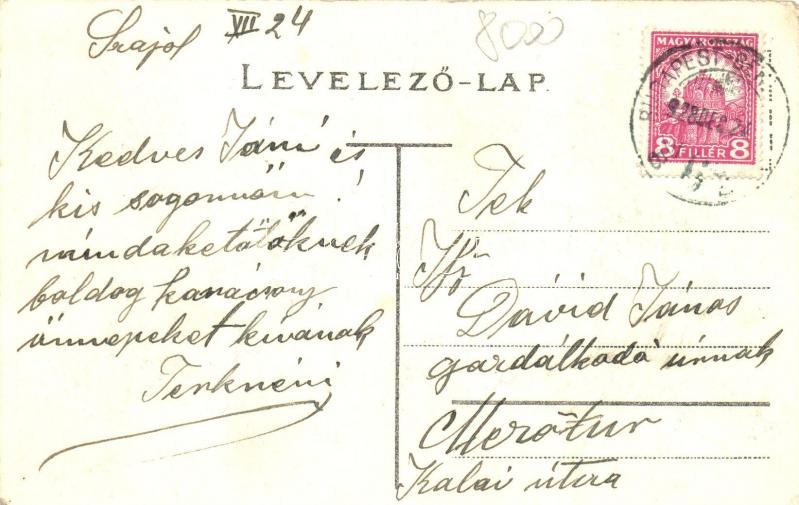 Szajol XII 24
8000
LEVELEZŐ-LAP.
MAGYARORSZÁG
BUDAPEST
928 DEC 24
8 FILLÉR 8
Kedves Jáni és
kis sogornöm!
mindaketötöknek
boldog karácsony
ünnepeket kivánok
Terknéni
Tek
Ifj
Dávid János
gazdálkodó úrnak
Mezőtur
Kalai útca